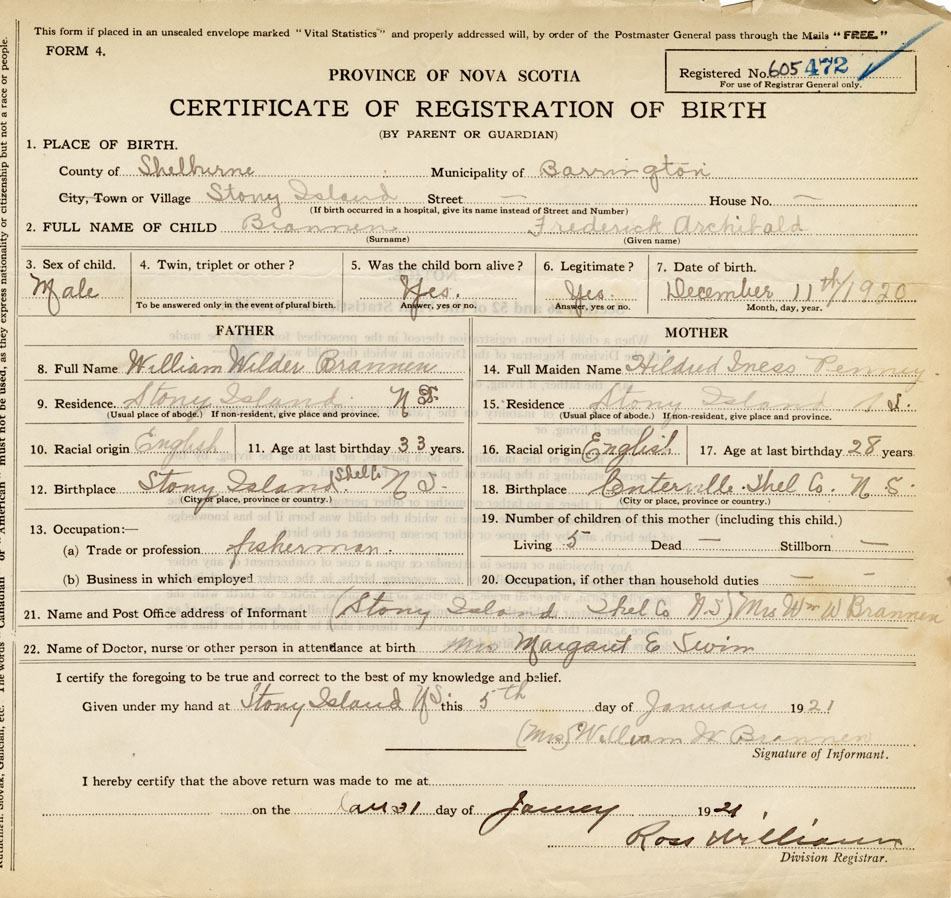 This form if placed in an unsealed envelope marked "Vital Statistics" and properly addressed will, by order of the Postmaster General pass through the Mails "FREE."
FORM 4.
Registered No. 605 472
For use of Registrar General only.
PROVINCE OF NOVA SCOTIA
CERTIFICATE OF REGISTRATION OF BIRTH
(BY PARENT OR GUARDIAN)
1. PLACE OF BIRTH.
County of Shelburne Municipality of Barrington
City, Town or Village Stony Island Street — House No. —
(If birth occurred in a hospital, give its name instead of Street and Number)
2. FULL NAME OF CHILD Brannen Frederick Archibald
(Surname) (Given name)
3. Sex of child. 4. Twin, triplet or other? 5. Was the child born alive? 6. Legitimate? 7. Date of birth.
Male Yes. Yes. December 11th/1920
To be answered only in the event of plural birth. Answer, yes or no. Answer, yes or no. Month, day, year.
FATHER MOTHER
8. Full Name William Wilder Brannen 14. Full Maiden Name Hildred Iness Penney
9. Residence. Stony Island N S. 15. Residence Stony Island S.
(Usual place of abode.) If non-resident, give place and province. (Usual place of abode.) If non-resident, give place and province.
10. Racial origin English 11. Age at last birthday 33 years. 16. Racial origin English. 17. Age at last birthday 28 years
12. Birthplace Stony Island Shel Co N S. 18. Birthplace Centerville Shel Co. N S.
(City or place, province or country.) (City or place, province or country.)
13. Occupation:— 19. Number of children of this mother (including this child.)
(a) Trade or profession fisherman. Living 5 Dead — Stillborn —
(b) Business in which employed 20. Occupation, if other than household duties — —
21. Name and Post Office address of Informant (Stony Island Shel Co N.S) Mrs Wm W Brannen
22. Name of Doctor, nurse or other person in attendance at birth Mrs Margaret E Swim
I certify the foregoing to be true and correct to the best of my knowledge and belief.
Given under my hand at Stony Island N S. this 5th day of January 1921
(Mrs) William W Brannen
Signature of Informant.
I hereby certify that the above return was made to me at
on the 31 day of 1921
Ross Williams
Division Registrar.
must not be used, as they express nationality or citizenship but not a race or people.
The words "Canadian" or "American"
Ruthenian, Slovak, Galician, etc.